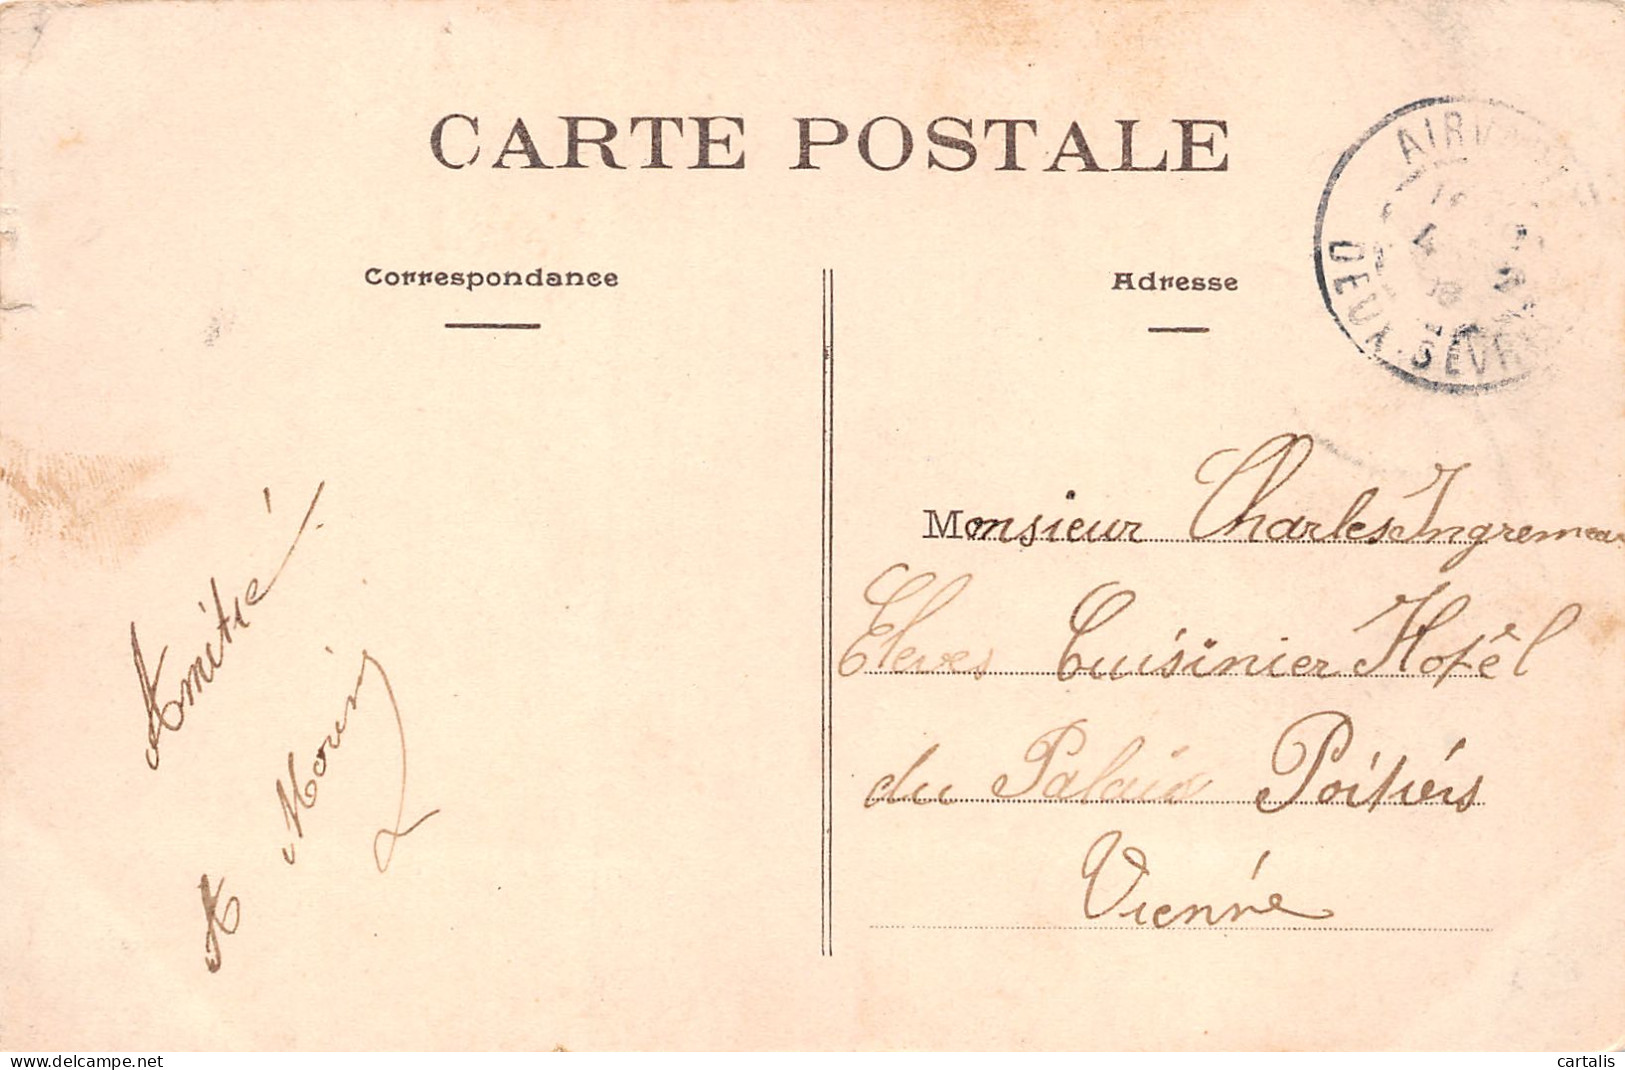 CARTE POSTALE
Correspondance
Adresse
DEUX-SÈVRES
Amitié.
A Morin
Monsieur Charles Ingremeau
Eleves Cuisinier Hotêl
du Palais Poitiérs
Vienne
cartalis